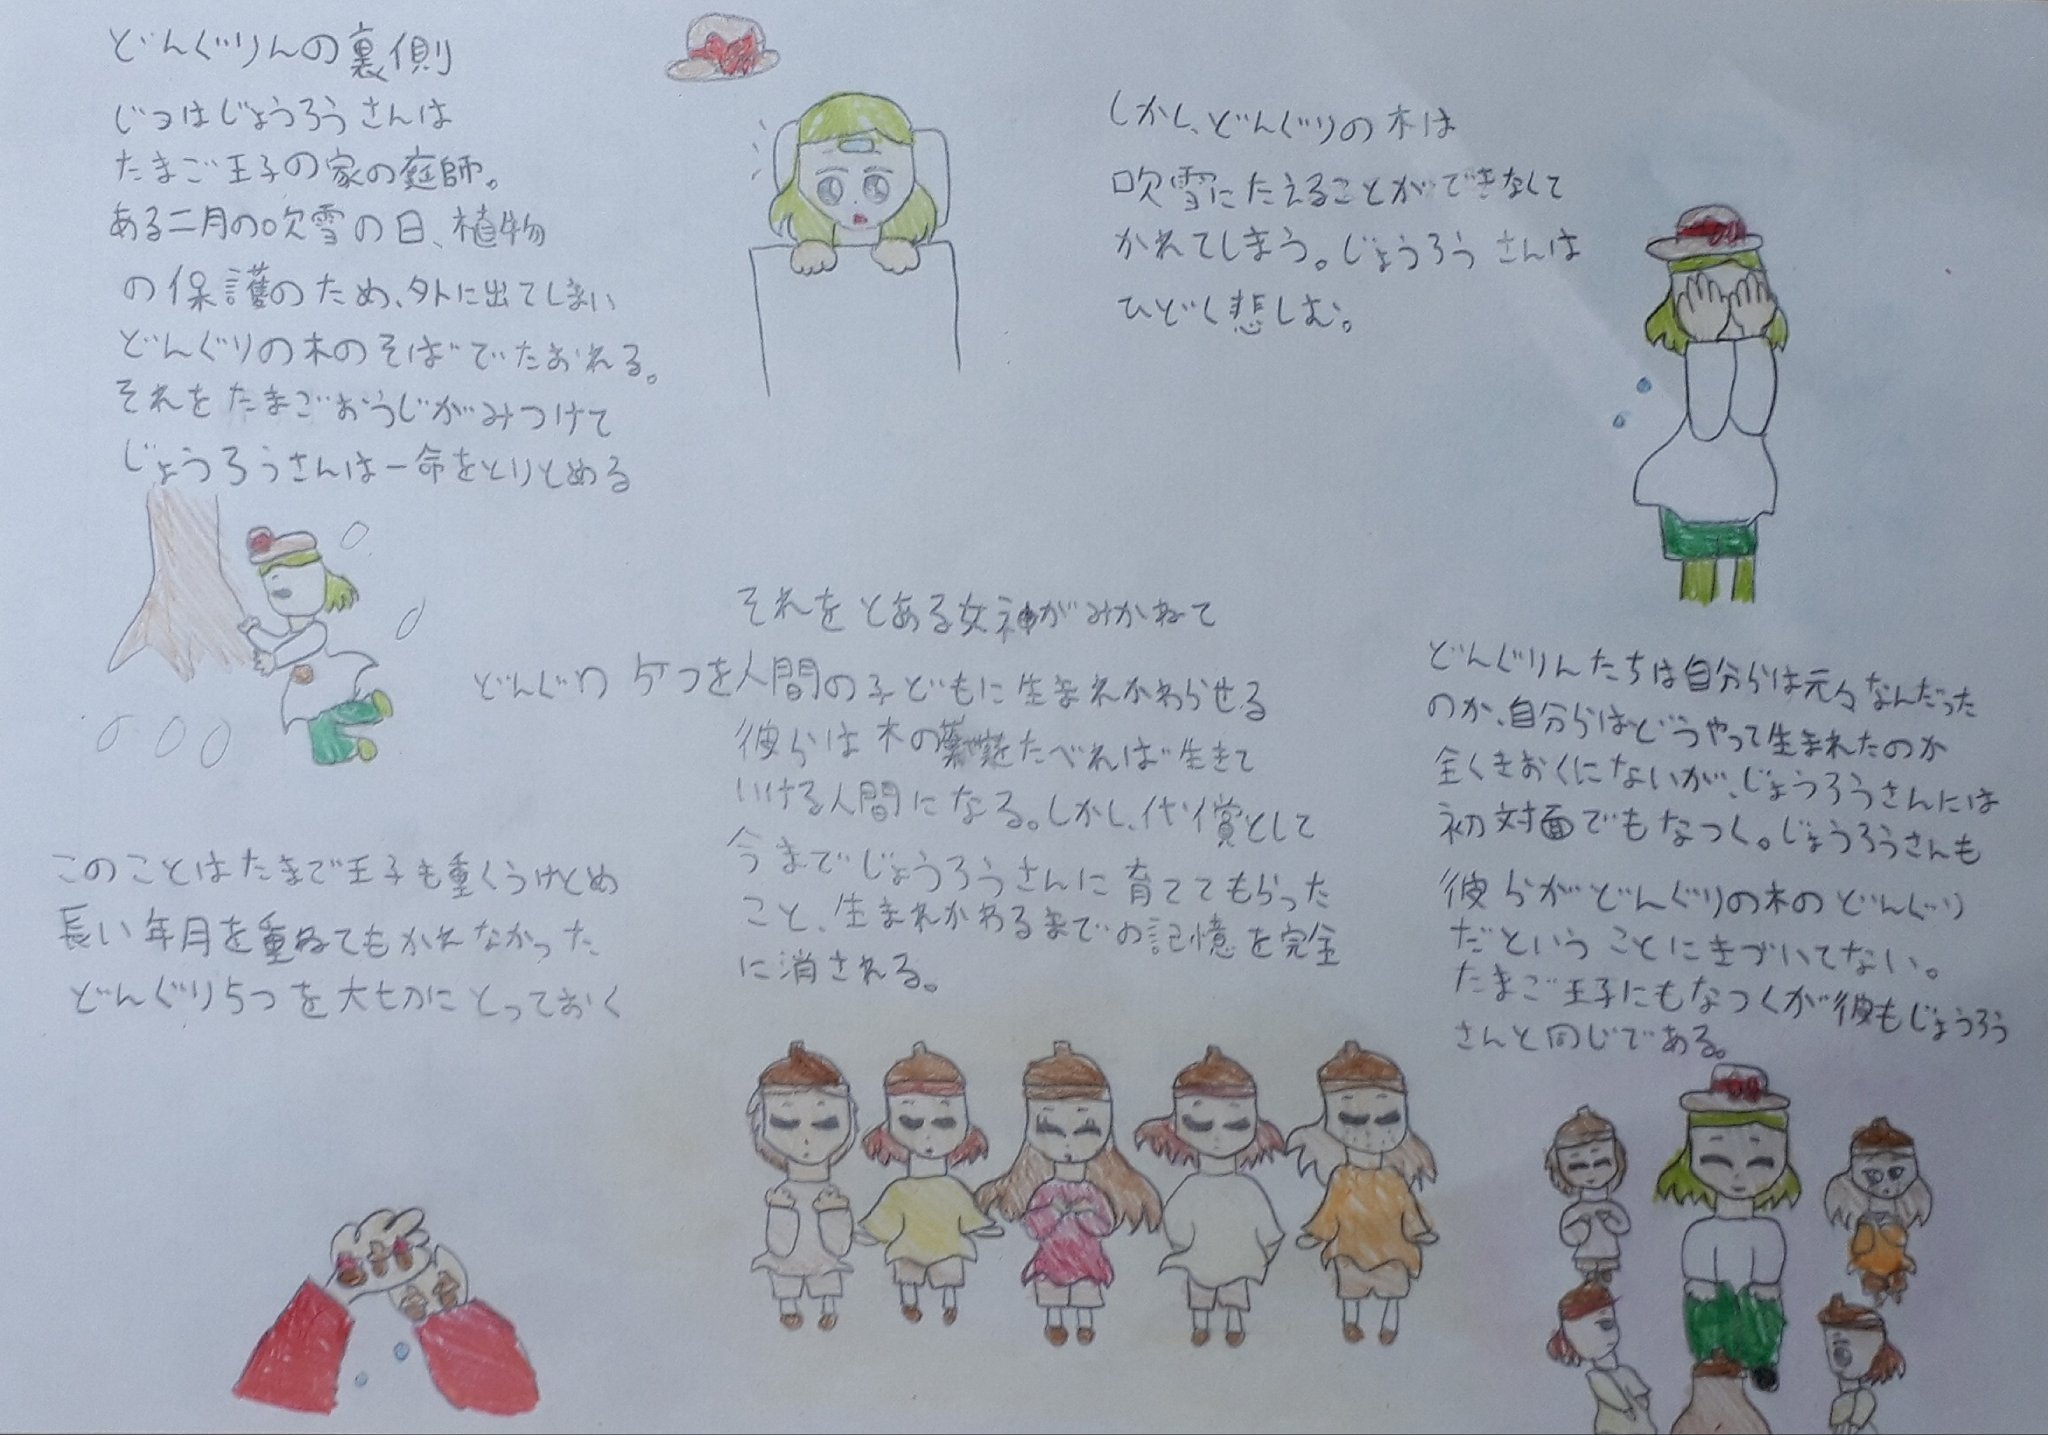 どんぐりんの裏側
じつはじょうろうさんは
たまご王子の家の庭師。
ある二月の吹雪の日、植物
の保護のため、外に出てしまい
どんぐりの木のそばでたおれる。
それをたまごおうじがみつけて
じょうろうさんは一命をとりとめる
しかし、どんぐりの木は
吹雪にたえることができなくて
かれてしまう。じょうろうさんは
ひどく悲しむ。
このことはたまご王子も重くうけとめ
長い年月を重ねてもかれなかった
どんぐり5つを大切にとっておく
それをとある女神がみかねて
どんぐり5つを人間の子どもに生まれかわらせる
彼らは木の をたべれば生きて
いける人間になる。しかし、代償として
今までじょうろうさんに育ててもらった
こと、生まれかわるまでの記憶を完全
に消される。
どんぐりんたちは自分らは元々なんだった
のか、自分らはどうやって生まれたのか
全くきおくにないが、じょうろうさんには
初対面でもなつく。じょうろうさんも
彼らがどんぐりの木のどんぐり
だということにきづいてない。
たまご王子にもなつくが彼もじょうろう
さんと同じである。